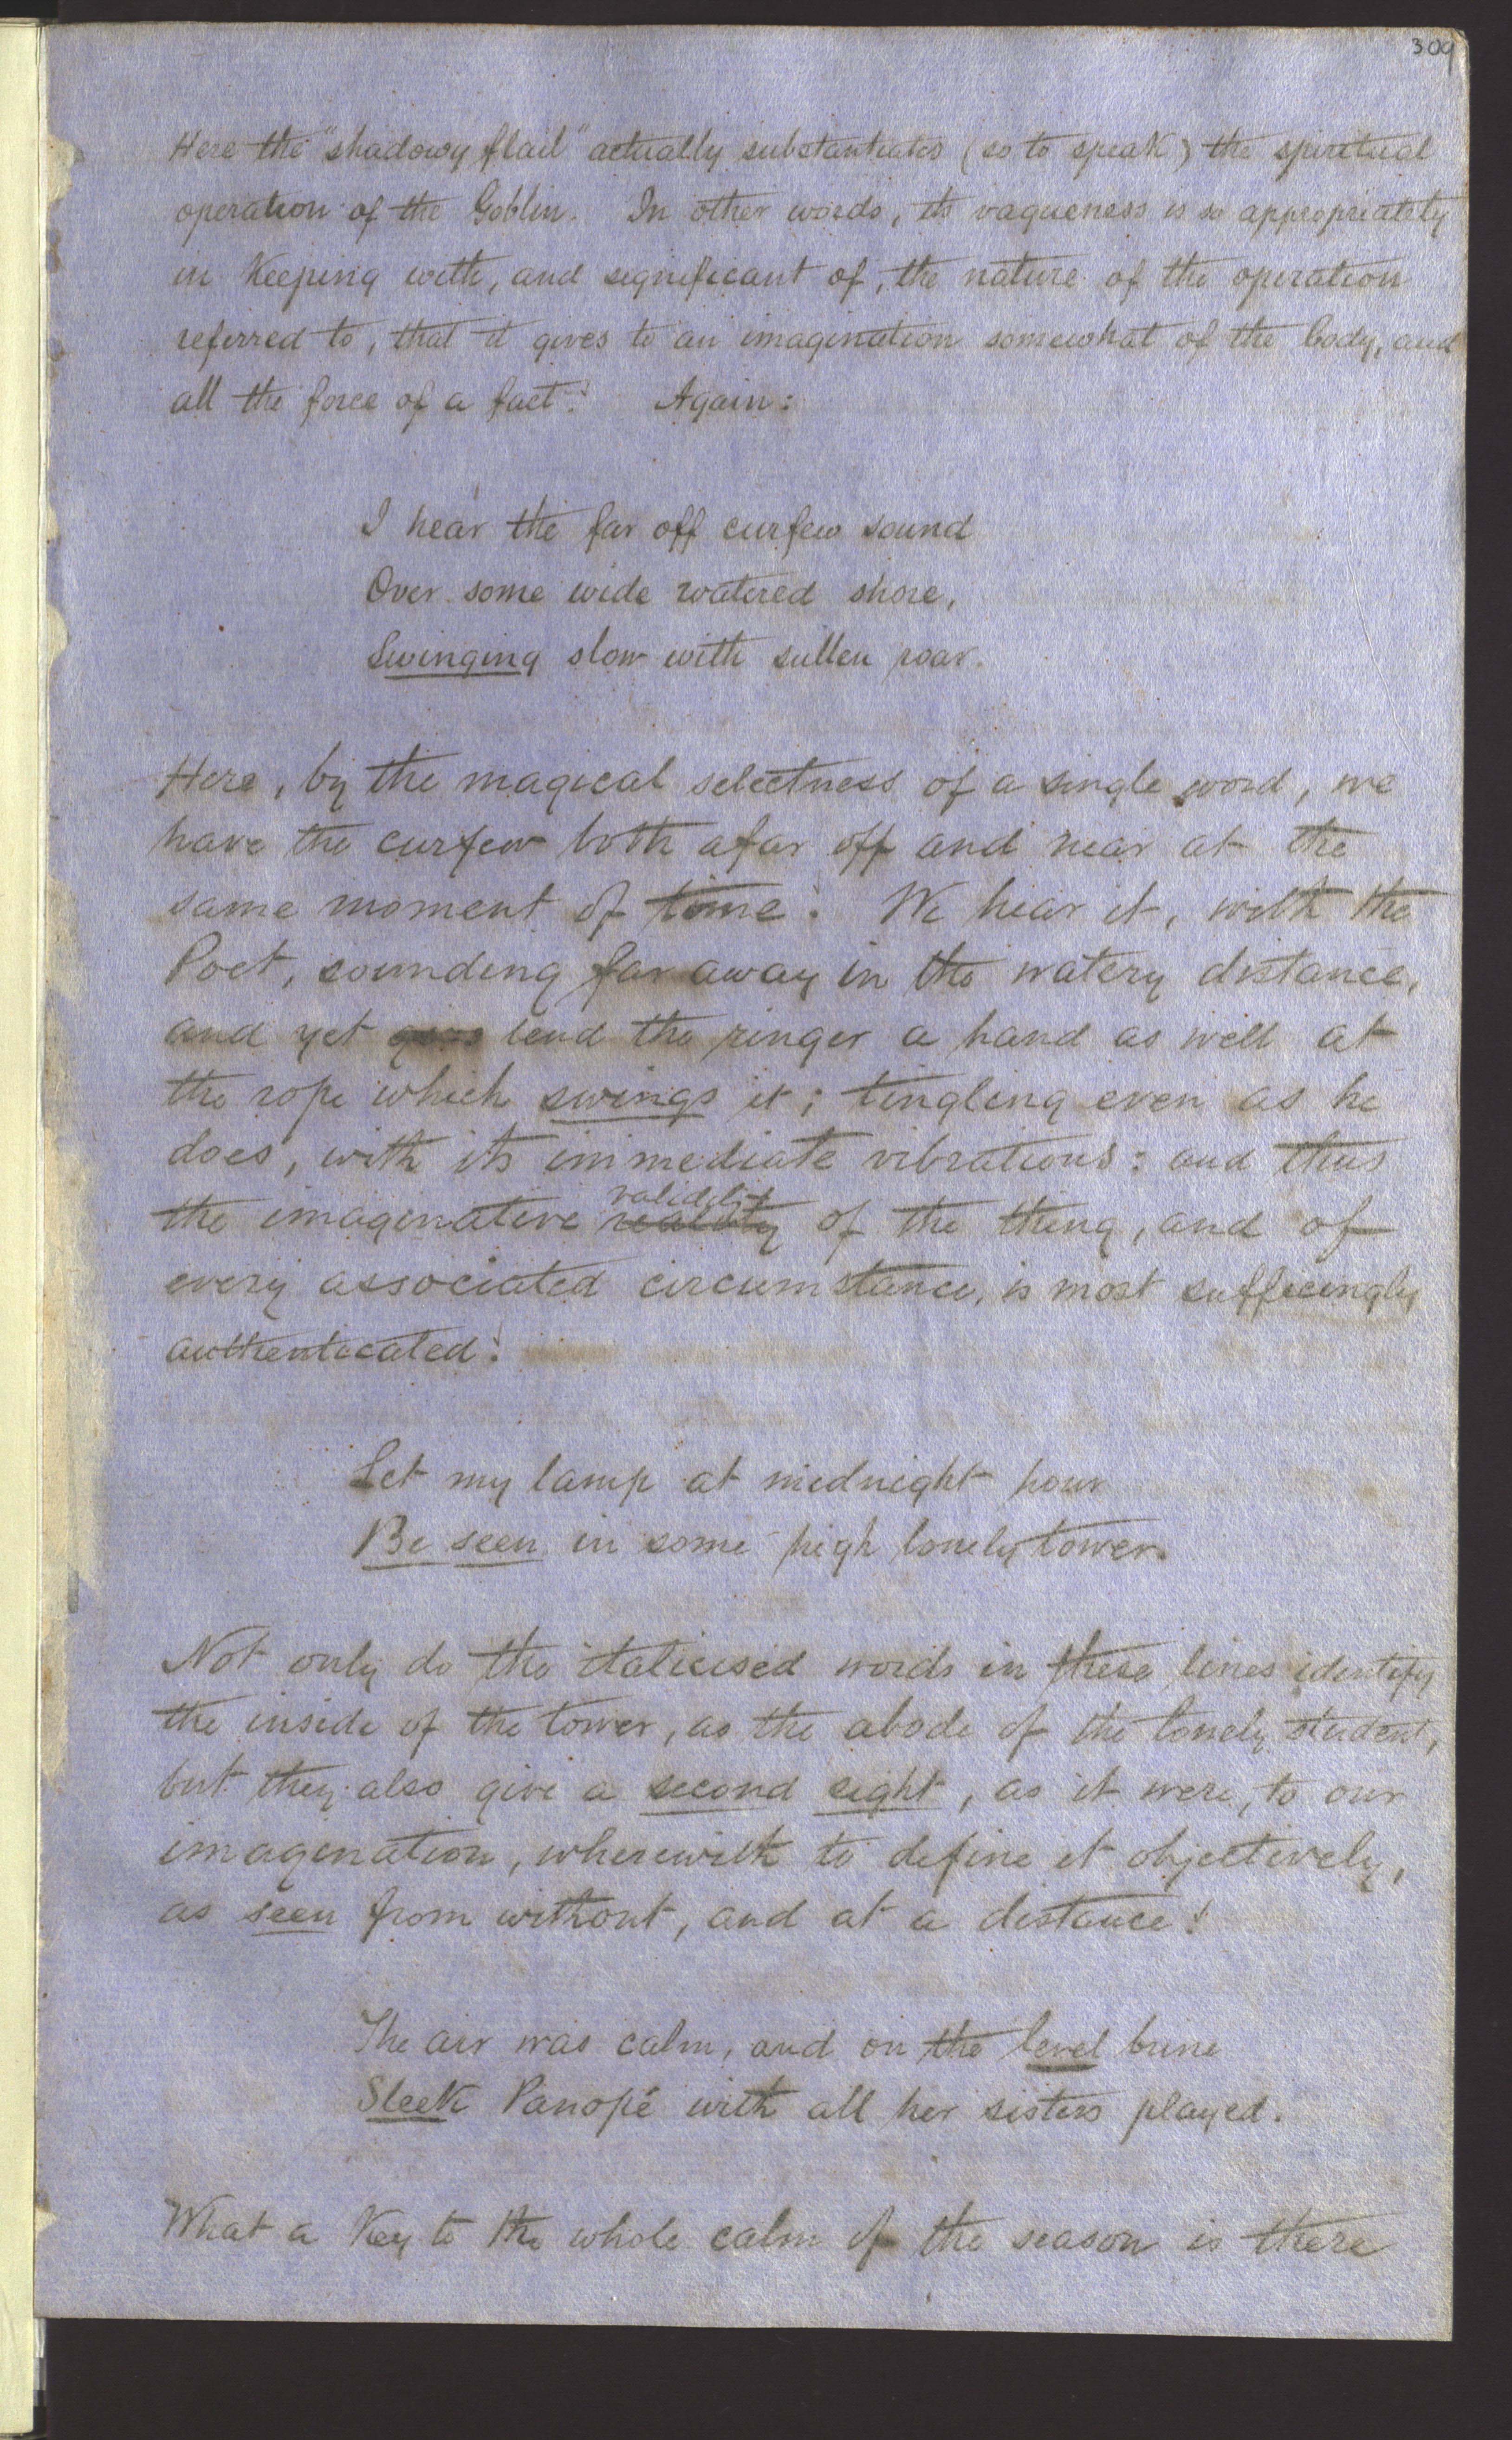 309
Here the "shadowy flail" actually substantiates (so to speak) the spiritual
operation of the Goblin. In other words, its vagueness is so appropriately
in Keeping with, and significant of, the nature of the operation
referred to, that it gives to an imagination somewhat of the body, and
all the force of a fact! Again:
I hear the far off curfew sound
Over some wide watered shore,
Swinging slow with sullen roar.
Here, by the magical selectness of a single word, we
have the curfew both afar off and near at the
same moment of time! We hear it, with the
Poet, sounding far away in the watery distance,
and yet lend the ringer a hand as well at
the rope which swings it; tingling even as he
does, with its immediate vibrations: and thus
validity
the imaginative reality of the thing, and of
every associated circumstance, is most sufficingly
authenticated!
Let my lamp at midnight hour
Be seen in some high lonely tower.
Not only do the italicised words in these lines identify
the inside of the tower, as the abode of the lonely student,
but they also give a second sight, as it were, to our
imagination, wherewith to define it objectively,
as seen from without, and at a distance!
The air was calm, and on the level brine
Sleek Panopé with all her sisters played.
What a Key to the whole calm of the season is there